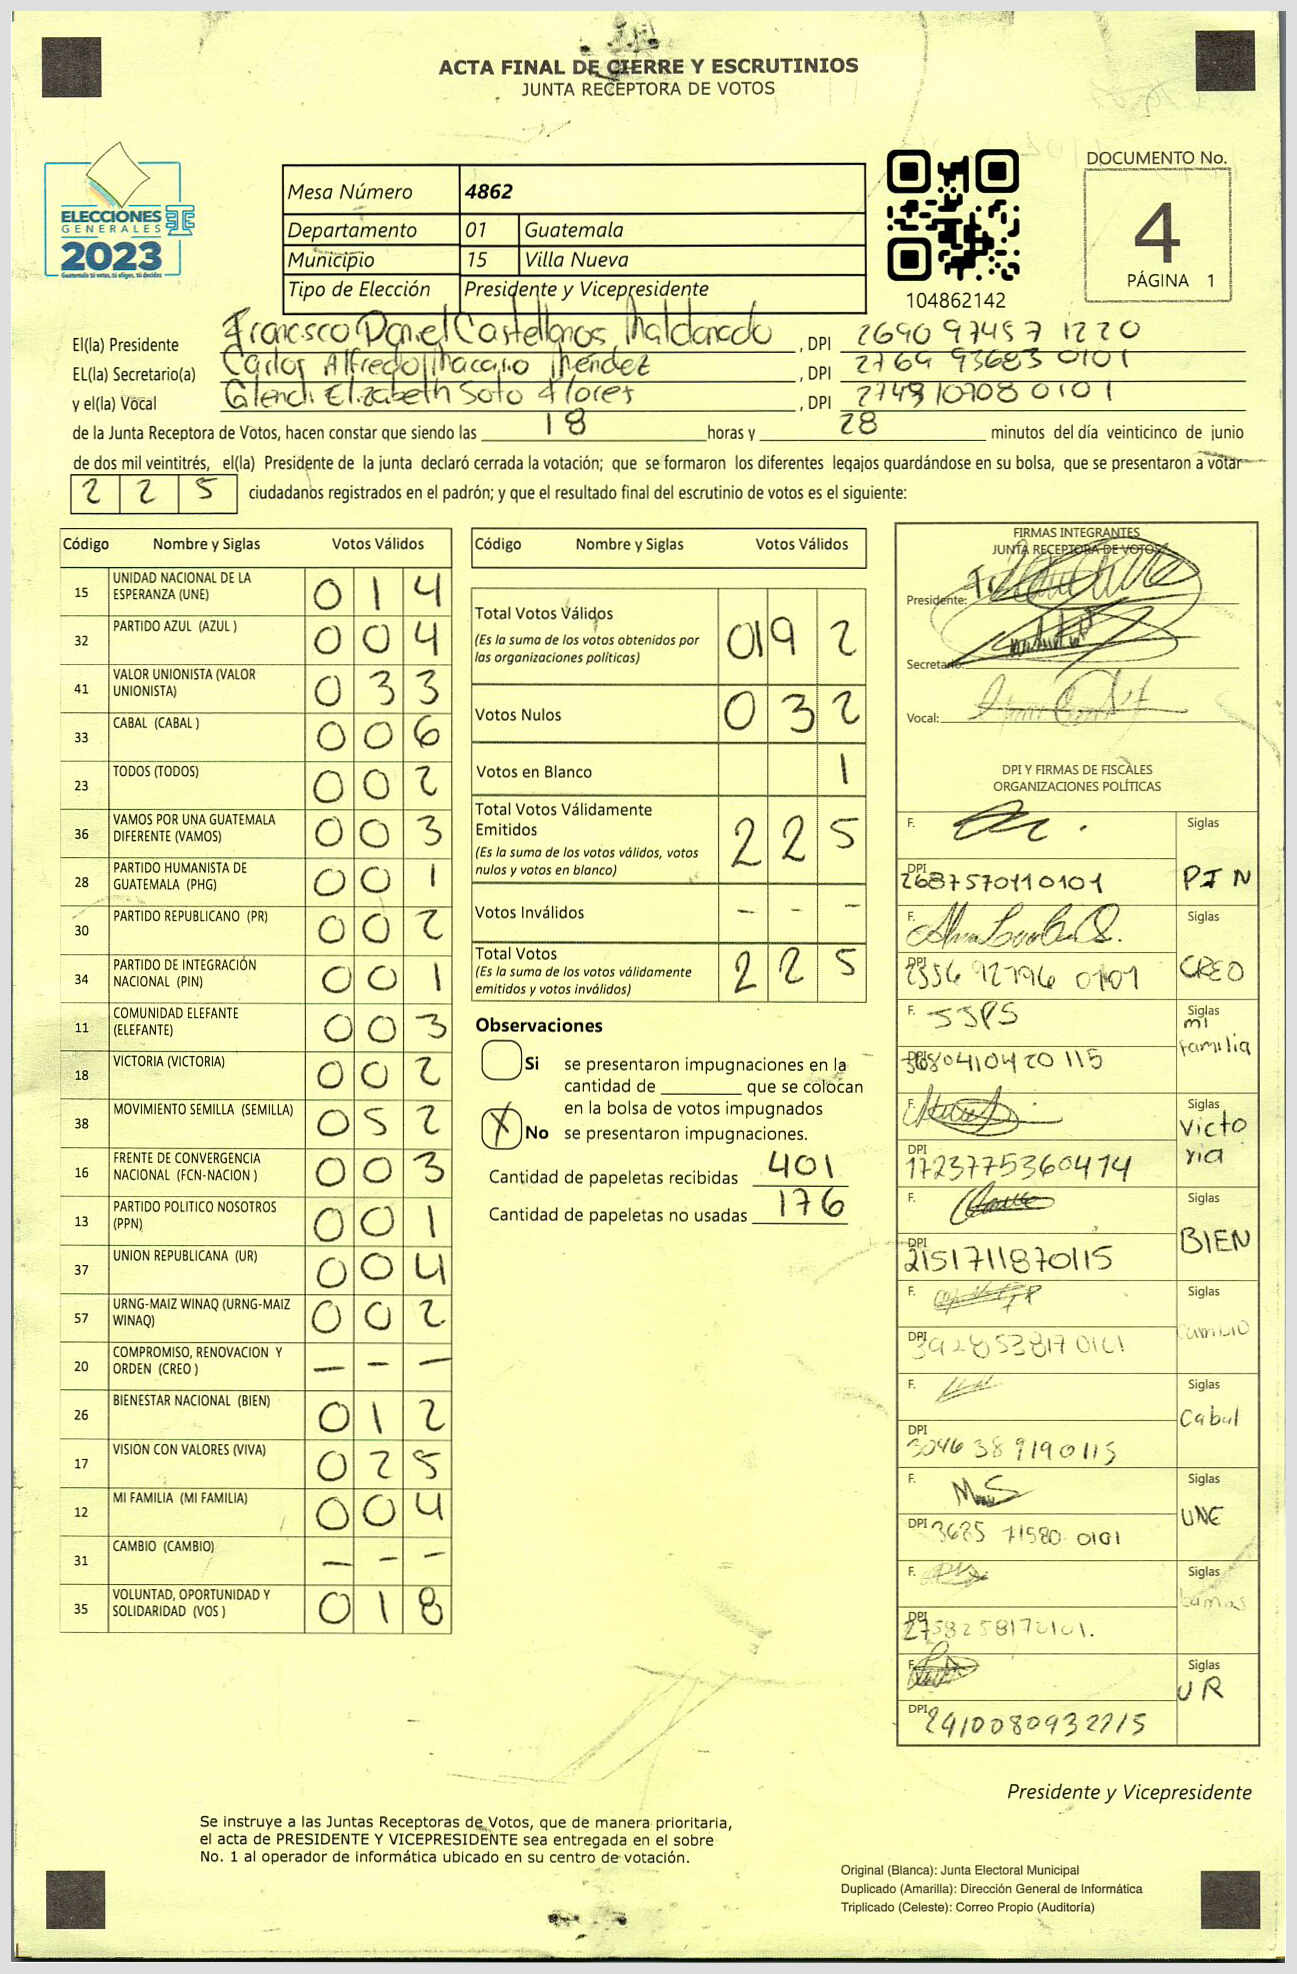 ACTA FINAL DE CIERRE Y ESCRUTINIOS
JUNTA RECEPTORA DE VOTOS
ELECCIONES
GENERALES
2023
Guatemala tú votas, tú eliges, tú decides
Mesa Número 4862
Departamento 01 Guatemala
Municipio 15 Villa Nueva
Tipo de Elección Presidente y Vicepresidente
104862142
DOCUMENTO No.
4
PÁGINA 1
El(la) Presidente Francisco Daniel Castellanos Maldonado, DPI 2690 97457 1220
EL(la) Secretario(a) Carlos Alfredo Macario Méndez, DPI 2769 93683 0101
y el(la) Vocal Glendi Elizabeth Soto Flores, DPI 2749 10708 0101
de la Junta Receptora de Votos, hacen constar que siendo las 18 horas y 28 minutos del día veinticinco de junio
de dos mil veintitrés, el(la) Presidente de la junta declaró cerrada la votación; que se formaron los diferentes legajos guardándose en su bolsa, que se presentaron a votar
2 2 5 ciudadanos registrados en el padrón; y que el resultado final del escrutinio de votos es el siguiente:
Código Nombre y Siglas Votos Válidos
15 UNIDAD NACIONAL DE LA ESPERANZA (UNE) 0 1 4
32 PARTIDO AZUL (AZUL ) 0 0 4
41 VALOR UNIONISTA (VALOR UNIONISTA) 0 3 3
33 CABAL (CABAL ) 0 0 6
23 TODOS (TODOS) 0 0 2
36 VAMOS POR UNA GUATEMALA DIFERENTE (VAMOS) 0 0 3
28 PARTIDO HUMANISTA DE GUATEMALA (PHG) 0 0 1
30 PARTIDO REPUBLICANO (PR) 0 0 2
34 PARTIDO DE INTEGRACIÓN NACIONAL (PIN) 0 0 1
11 COMUNIDAD ELEFANTE (ELEFANTE) 0 0 3
18 VICTORIA (VICTORIA) 0 0 2
38 MOVIMIENTO SEMILLA (SEMILLA) 0 5 2
16 FRENTE DE CONVERGENCIA NACIONAL (FCN-NACION ) 0 0 3
13 PARTIDO POLITICO NOSOTROS (PPN) 0 0 1
37 UNION REPUBLICANA (UR) 0 0 4
57 URNG-MAIZ WINAQ (URNG-MAIZ WINAQ) 0 0 2
20 COMPROMISO, RENOVACION Y ORDEN (CREO ) – – –
26 BIENESTAR NACIONAL (BIEN) 0 1 2
17 VISION CON VALORES (VIVA) 0 2 5
12 MI FAMILIA (MI FAMILIA) 0 0 4
31 CAMBIO (CAMBIO) – – –
35 VOLUNTAD, OPORTUNIDAD Y SOLIDARIDAD (VOS ) 0 1 8
Código Nombre y Siglas Votos Válidos
Total Votos Válidos 0 1 9 2
(Es la suma de los votos obtenidos por
las organizaciones políticas)
Votos Nulos 0 3 2
Votos en Blanco 1
Total Votos Válidamente
Emitidos 2 2 5
(Es la suma de los votos válidos, votos
nulos y votos en blanco)
Votos Inválidos – – –
Total Votos 2 2 5
(Es la suma de los votos válidamente
emitidos y votos inválidos)
Observaciones
Si se presentaron impugnaciones en la
cantidad de ________ que se colocan
en la bolsa de votos impugnados
X No se presentaron impugnaciones.
Cantidad de papeletas recibidas 401
Cantidad de papeletas no usadas 176
FIRMAS INTEGRANTES
JUNTA RECEPTORA DE VOTOS
Presidente:
Secretario:
Vocal:
DPI Y FIRMAS DE FISCALES
ORGANIZACIONES POLÍTICAS
F. Siglas
DPI 2687570110101 PIN
F. Siglas
DPI 2356 92796 0101 CREO
F. JJPS Siglas
DPI mi familia
F. Siglas
DPI 1723775360414 Victoria
F. Siglas
DPI 2151711870115 BIEN
F. Siglas
DPI Cambio
F. Siglas
DPI 3046 38 9190115 Cabal
F. M.S Siglas
DPI 3625 71580 0101 UNE
F. Siglas
DPI 2758258170101.
F. Siglas
DPI 2410080932215 UR
Presidente y Vicepresidente
Se instruye a las Juntas Receptoras de Votos, que de manera prioritaria,
el acta de PRESIDENTE Y VICEPRESIDENTE sea entregada en el sobre
No. 1 al operador de informática ubicado en su centro de votación.
Original (Blanca): Junta Electoral Municipal
Duplicado (Amarilla): Dirección General de Informática
Triplicado (Celeste): Correo Propio (Auditoría)